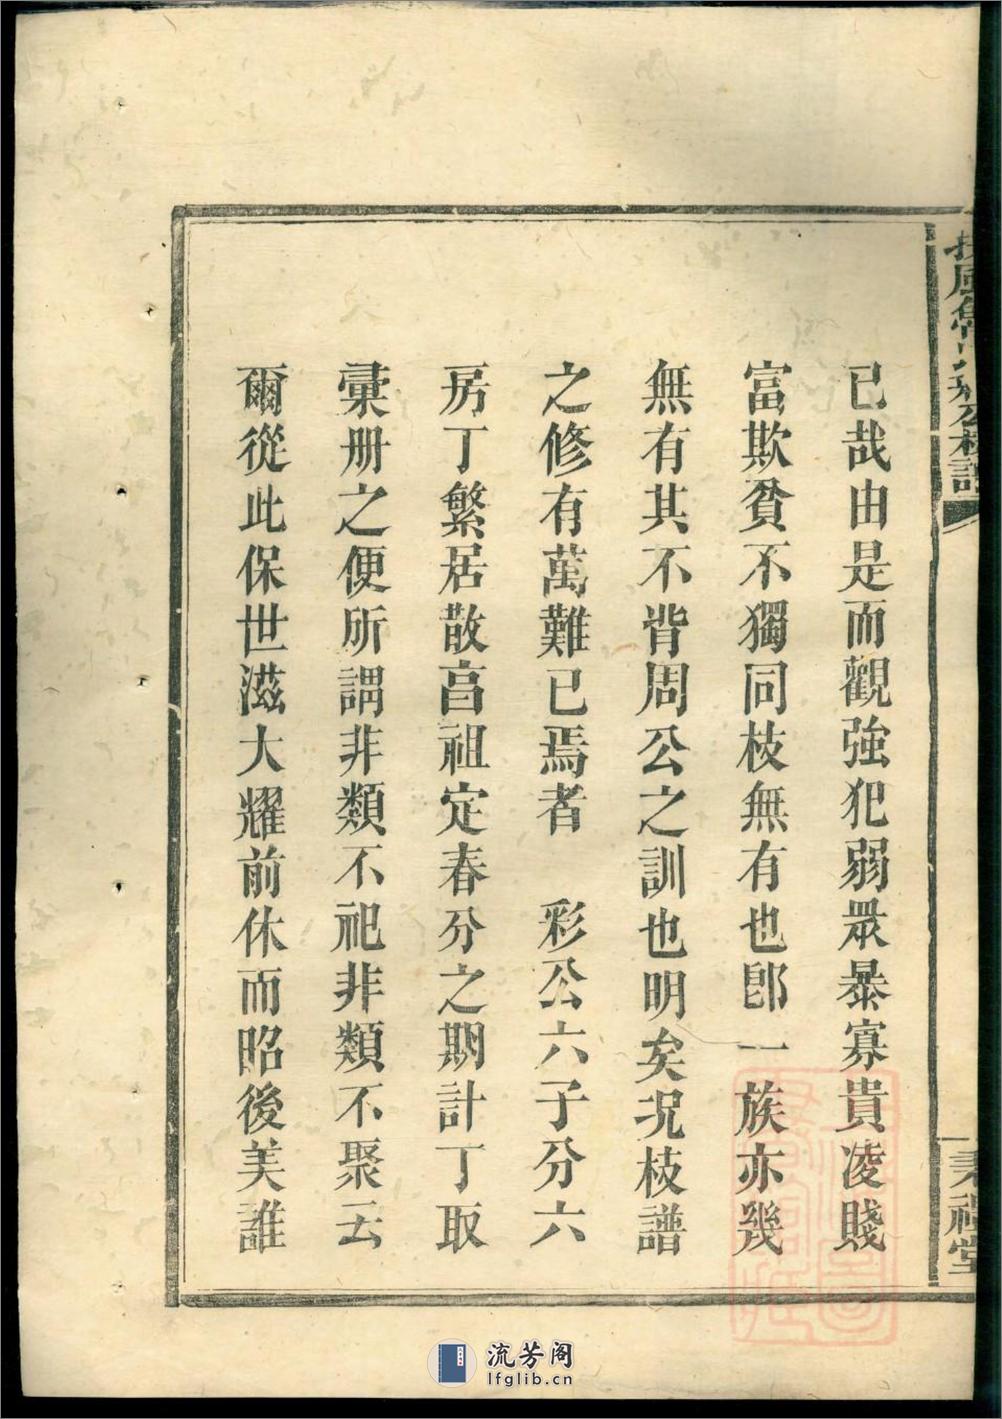 已哉由是而觀強犯弱眾暴寡貴凌賤
富欺貧不獨同枝無有也即一族亦幾
無有其不背周公之訓也明矣况枝譜
之修有萬難已焉者　彩公六子分六
房丁繁居散亯祖定春分之期計丁取
彙册之便所謂非類不祀非類不聚云
爾從此保世滋大耀前休而昭後美誰
秉禮堂
流芳阁
lfglib.cn